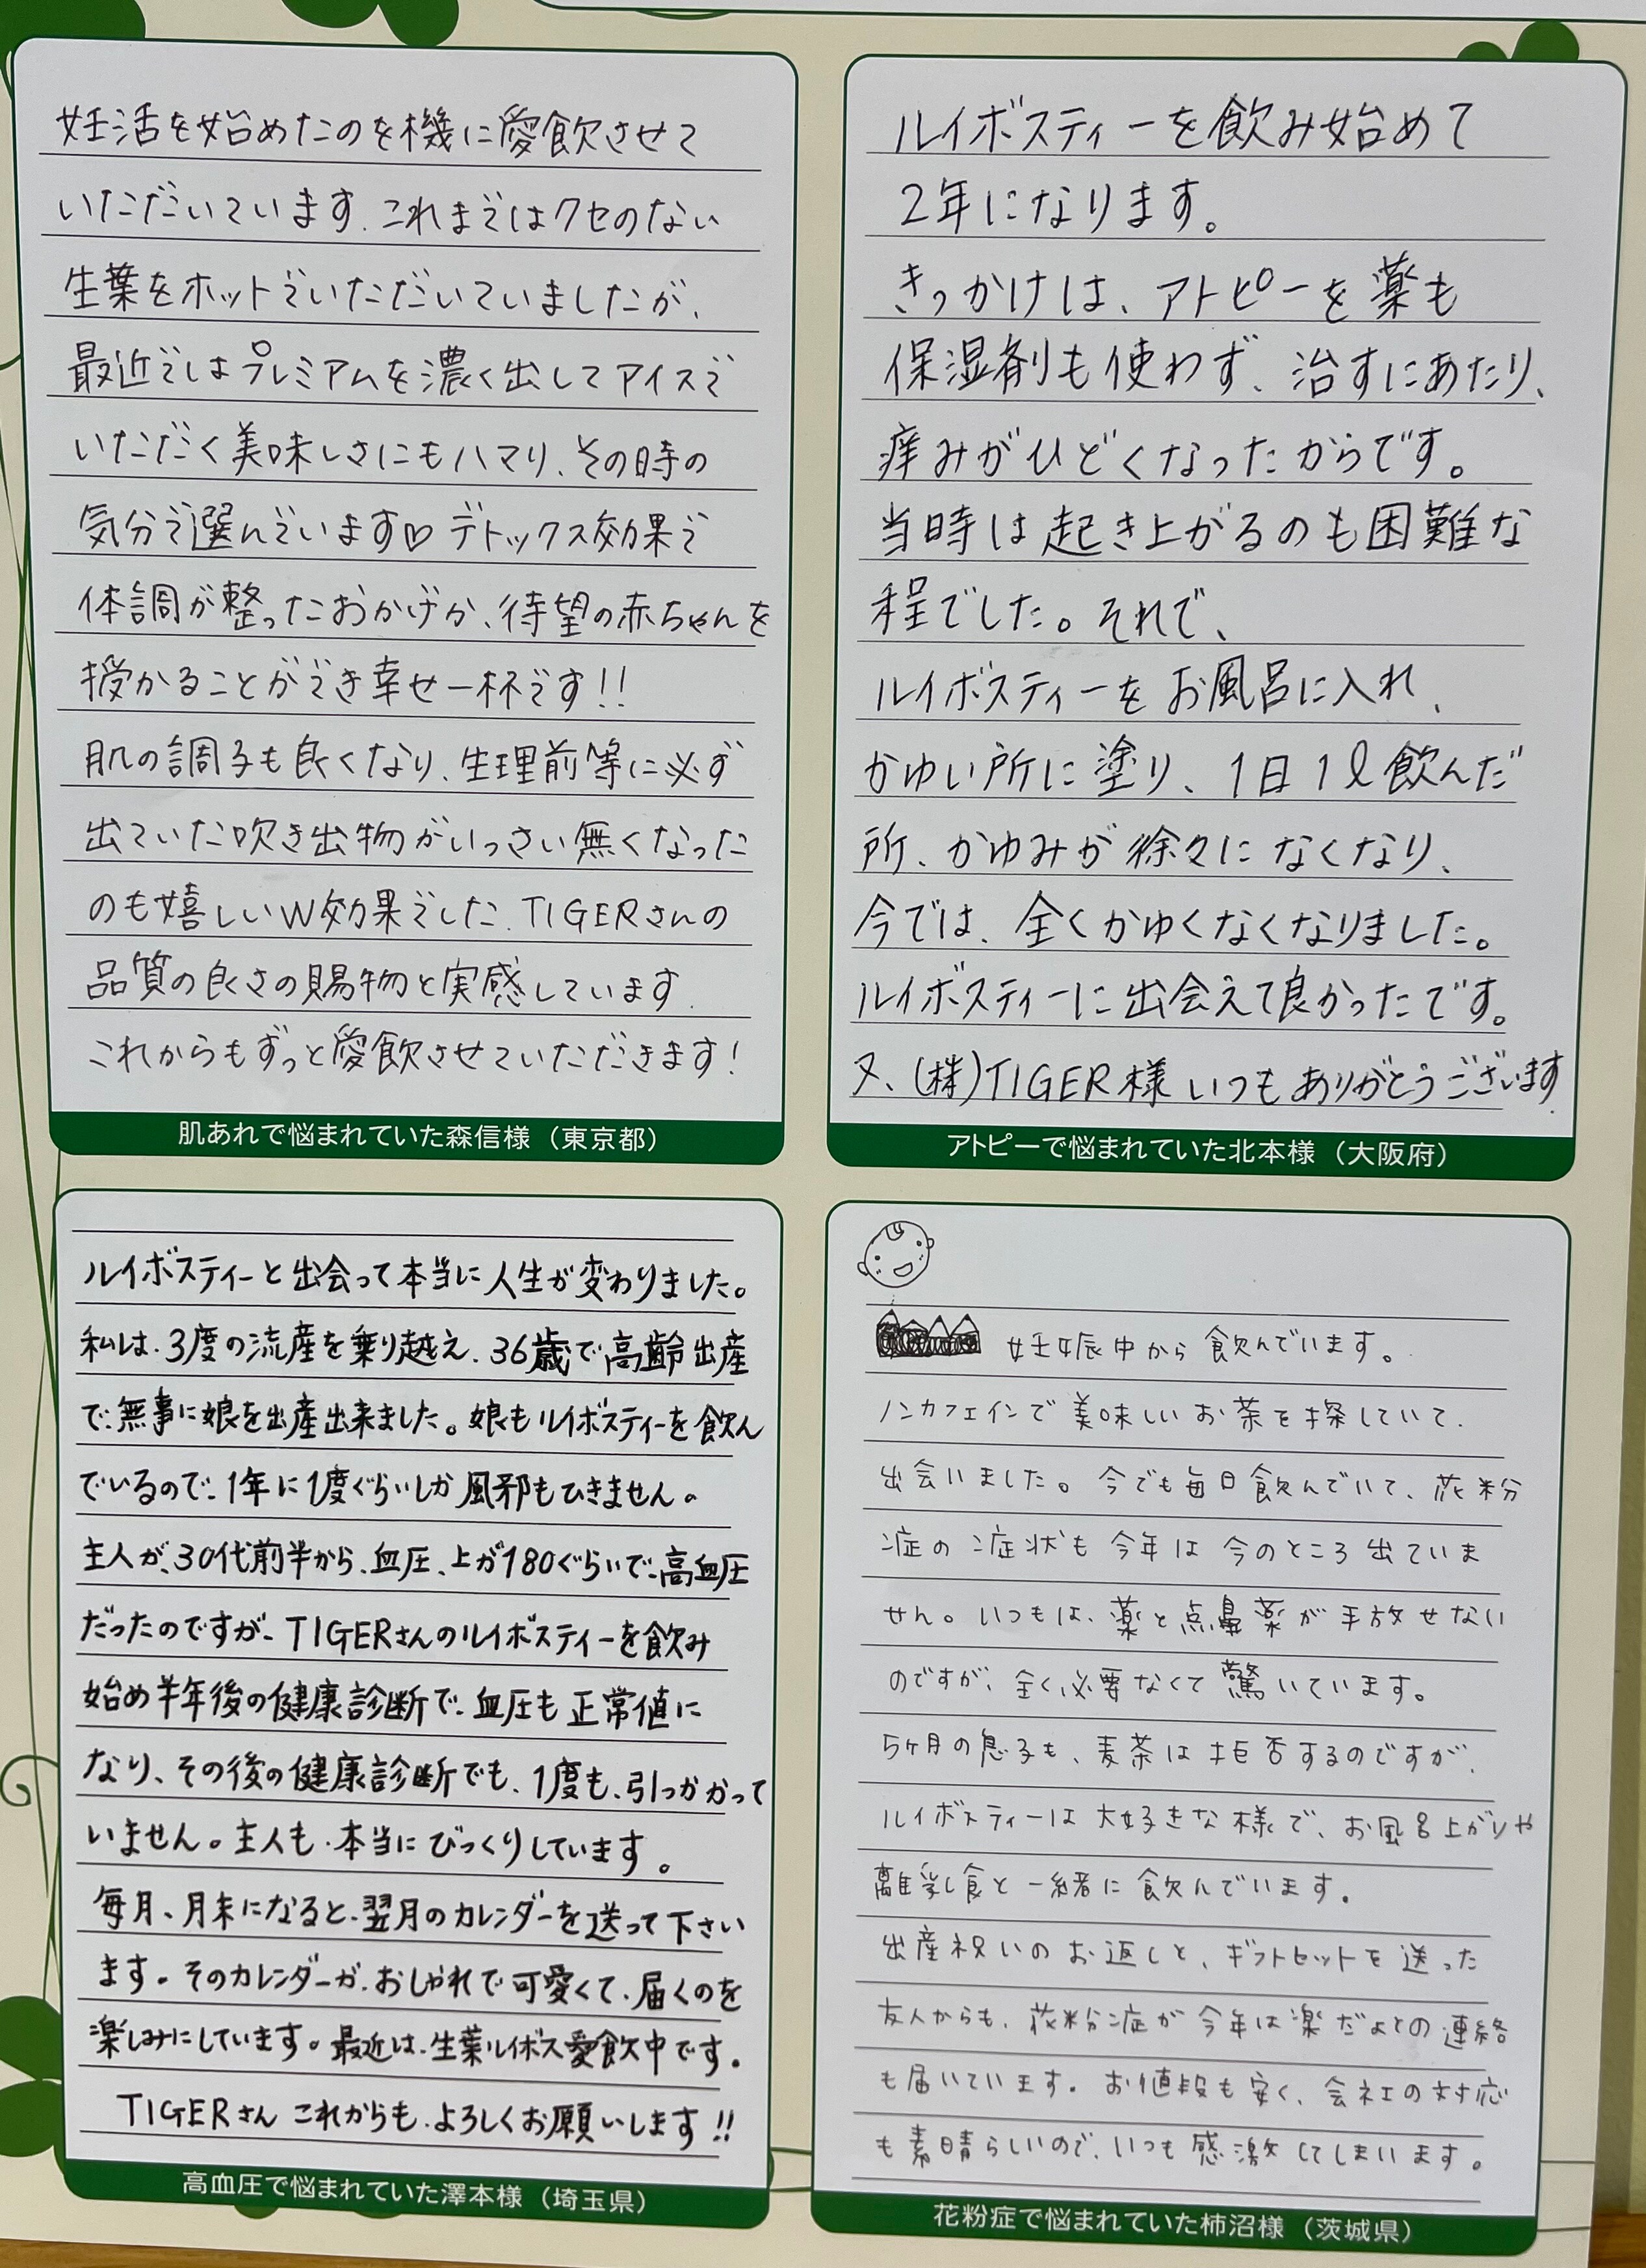 妊活を始めたのを機に愛飲させて
いただいています.これまではクセのない
生葉をホットでいただいていましたが、
最近ではプレミアムを濃く出してアイスで
いただく美味しさにもハマり、その時の
気分で選んでいます♡デトックス効果で
体調が整ったおかげか、待望の赤ちゃんを
授かることができ幸せ一杯です!!
肌の調子も良くなり、生理前等に必ず
出ていた吹き出物がいっさい無くなった
のも嬉しいW効果でした.TIGERさんの
品質の良さの賜物と実感しています.
これからもずっと愛飲させていただきます!
肌あれで悩まれていた森信様（東京都）
ルイボスティーを飲み始めて
2年になります。
きっかけは、アトピーを薬も
保湿剤も使わず、治すにあたり、
痒みがひどくなったからです。
当時は起き上がるのも困難な
程でした。それで、
ルイボスティーをお風呂に入れ、
かゆい所に塗り、1日1ℓ飲んだ
所、かゆみが徐々になくなり、
今では、全くかゆくなくなりました。
ルイボスティーに出会えて良かったです。
又、(株)TIGER様いつもありがとうございます.
アトピーで悩まれていた北本様（大阪府）
ルイボスティーと出会って本当に人生が変わりました。
私は、3度の流産を乗り越え、36歳で高齢出産
で、無事に娘を出産出来ました。娘もルイボスティーを飲ん
でいるので、1年に1度ぐらいしか風邪もひきません。
主人が、30代前半から、血圧、上が180ぐらいで、高血圧
だったのですが、TIGERさんのルイボスティーを飲み
始め半年後の健康診断で、血圧も正常値に
なり、その後の健康診断でも、1度も、引っかかって
いません。主人も、本当にびっくりしています。
毎月、月末になると、翌月のカレンダーを送って下さい
ます。そのカレンダーが、おしゃれで可愛くて、届くのを
楽しみにしています。最近は、生葉ルイボス愛飲中です。
TIGERさん これからも、よろしくお願いします!!
高血圧で悩まれていた澤本様（埼玉県）
妊娠中から飲んでいます。
ノンカフェインで美味しいお茶を探していて、
出会いました。今でも毎日飲んでいて、花粉
症の症状も今年は今のところ出ていま
せん。いつもは、薬と点鼻薬が手放せない
のですが、全く必要なくて驚いています。
5ヶ月の息子も、麦茶は拒否するのですが、
ルイボスティーは大好きな様で、お風呂上がりや
離乳食と一緒に飲んでいます。
出産祝いのお返しと、ギフトセットを送った
友人からも、花粉症が今年は楽だよとの連絡
も届いています。お値段も安く、会社の対応
も素晴らしいので、いつも感激してしまいます。
花粉症で悩まれていた柿沼様（茨城県）